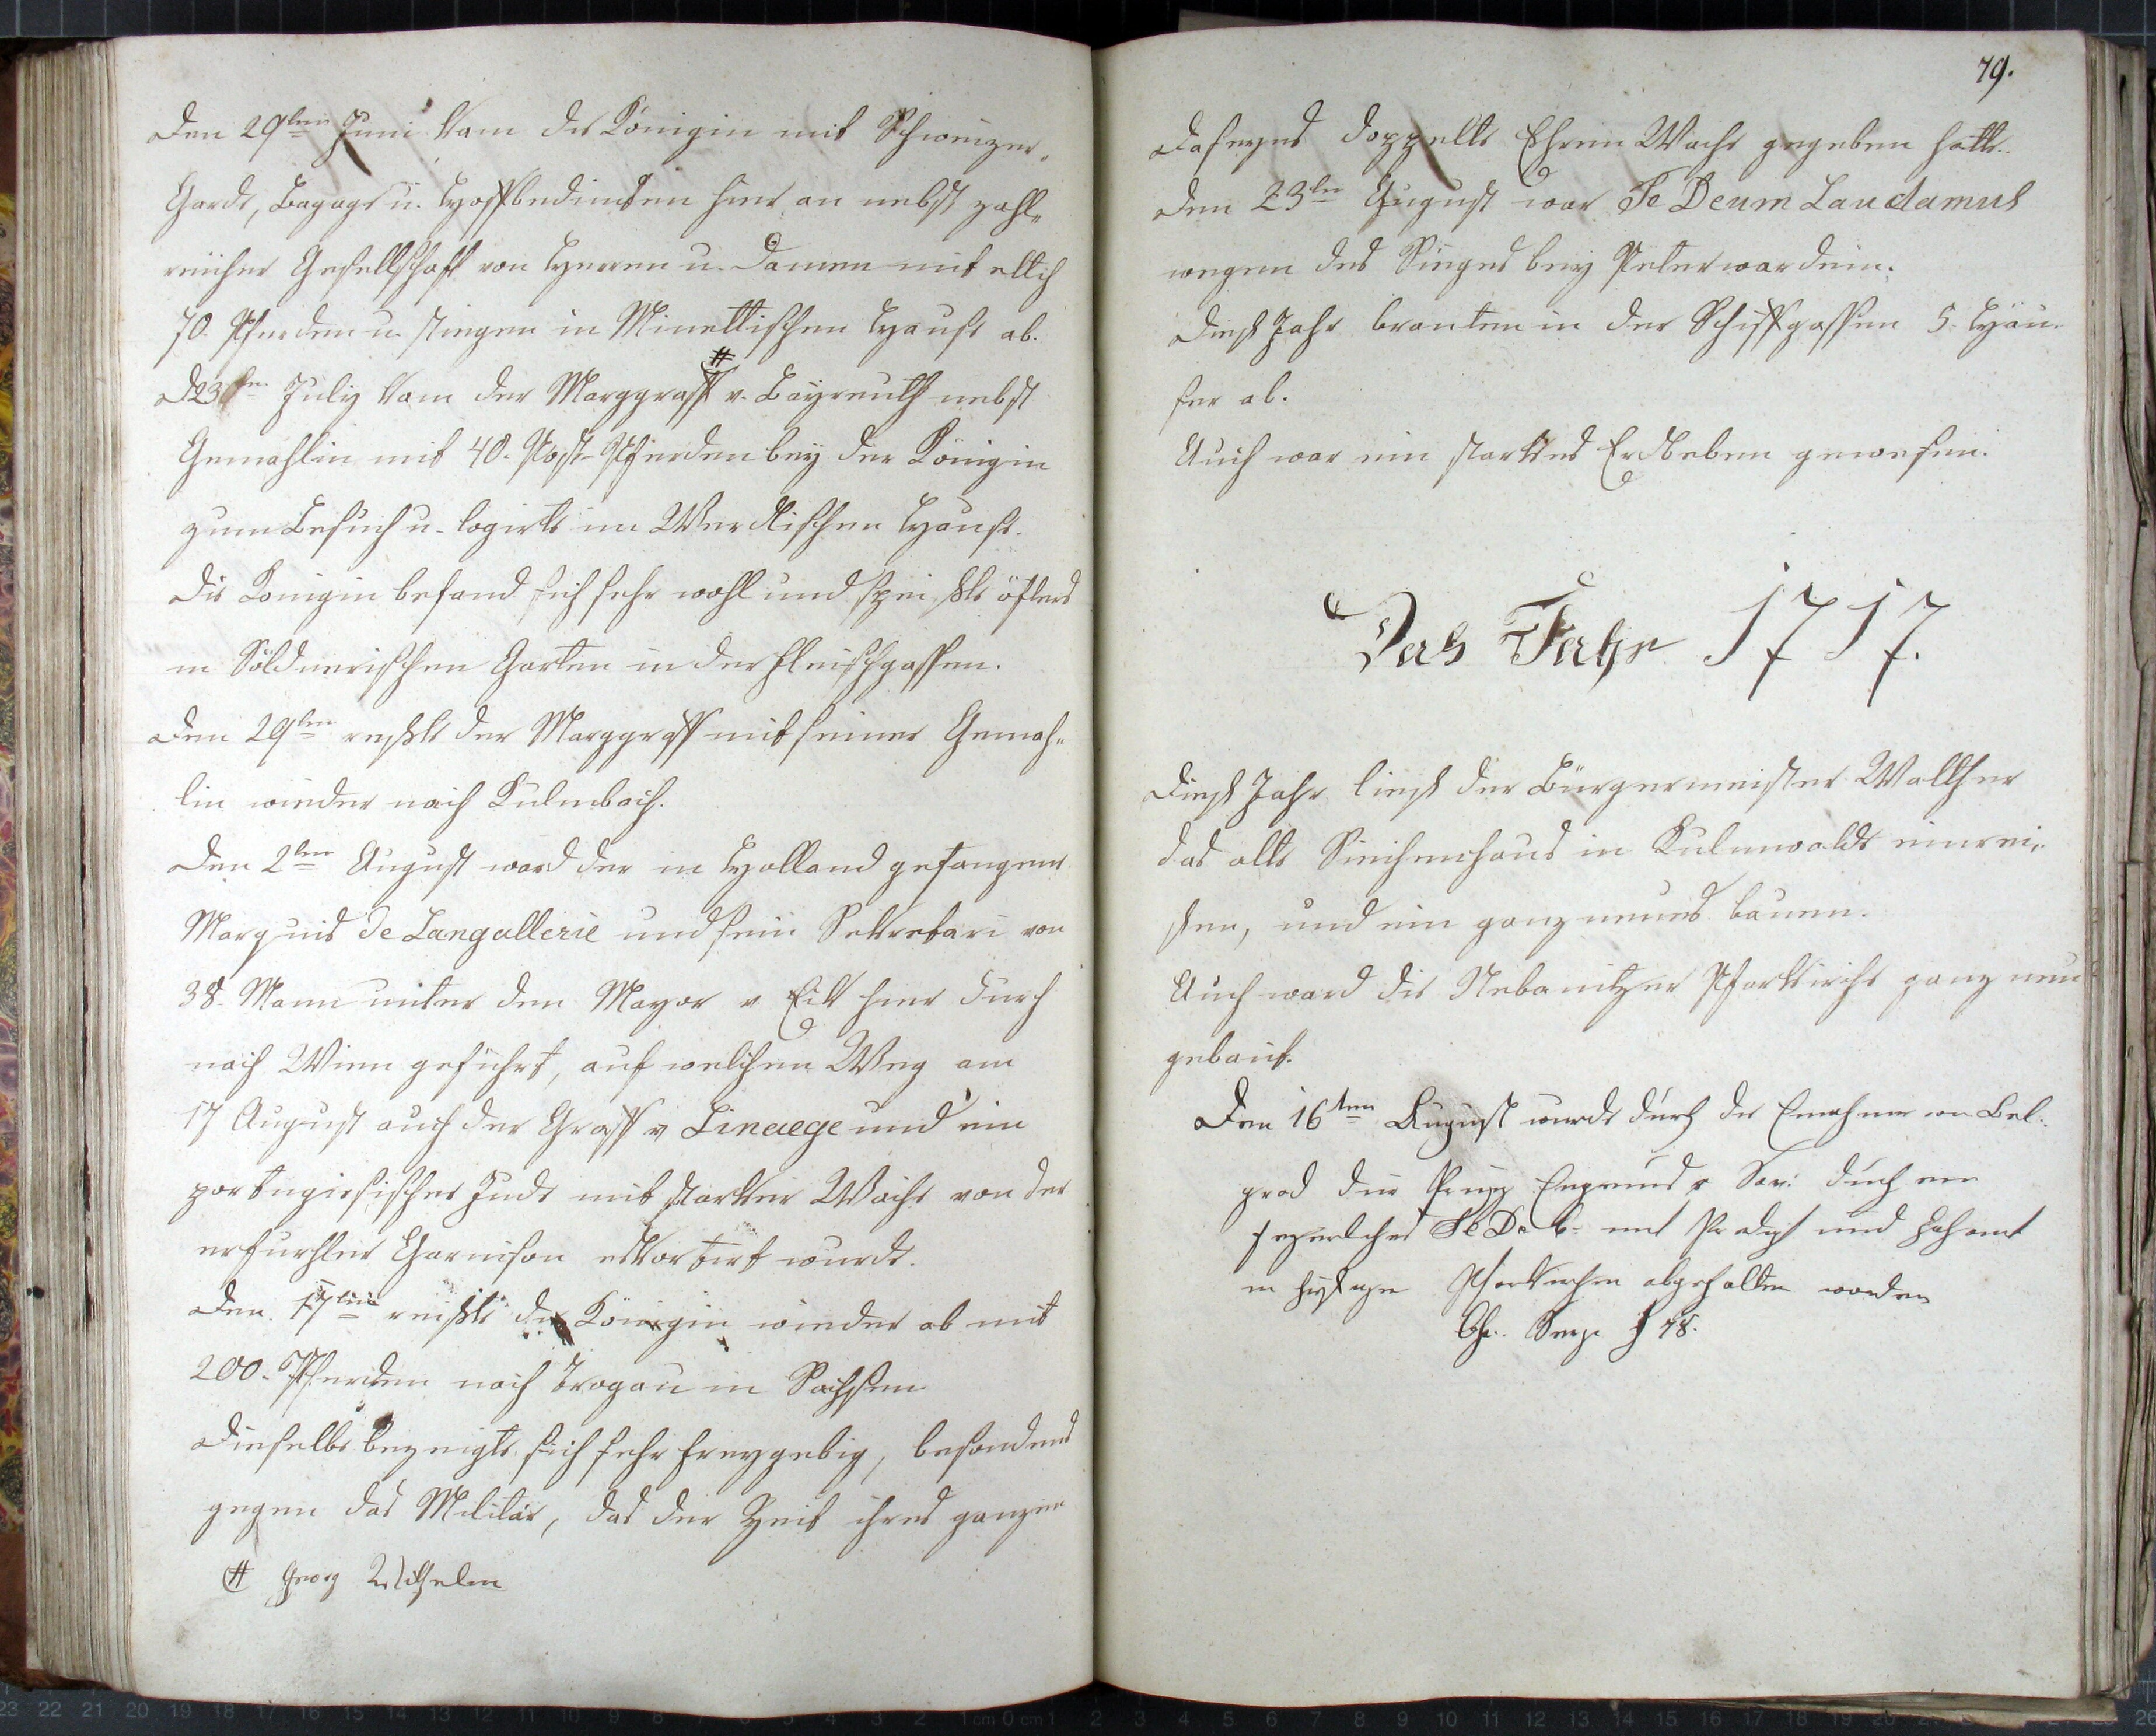 Den 29ten Juni kam die Königin mit Schweizer-
Garde, Bagage u. Hoffbedienten hier an nebst zahl-
reicher Gesellschaft von Herren u. Damen mit etlich
70. Pferden u. stiegen in Minettischen Hause ab.
D 23ten July kam der Marggraff # v. Bayreuth nebst
Gemahlin mit 40. Post-Pferden bey der Königin
zum Besuch u. logirte im Werdlischen Hause.
Die Königin befand sich sehr wohl und speißte öfters
in Söldnerischen Garten in der Fleischgassen.
Den 29ten reißte der Marggraff mit seiner Gemah-
lin wieder nach Kulmbach.
Den 2ten August ward der in Holland gefangene
Marquis de Langallerie und sein Sekretari von
38. Mann unter den Mayor v. Eik hier durch
nach Wien geführt, auf welchen Weg am
17 August auch der Graff v Linaege und ein
portugiesischer Jude mit starker Wache von der
erfurhter Garnison eskortirt wurde.
Den 17ten reißte die Königin wieder ab mit
200. Pferden nach Trogau in Sachsen
Dieselbe bezeigte sich sehr freygebig, besonders
gegen das Militär, das der Zeit ihres ganzen
# Georg Wilhelm
79.
Daseyns doppelte Ehren Wache gegeben hatte.
Den 23ten August war Te Deum Laudamus
wegen des Sieges bey Peterwardein.
Dieß Jahr branten in der Schiffgassen 5. Häu-
ser ab.
Auch war ein starkes Erdbeben gewesen.
Das Jahr 1717.
Dieß Jahr ließ der Bürgermeister Walther
das alte Siechenhaus in Kulmwalde einrei-
sen, und ein ganz neues bauen.
Auch ward die Nebanitzer Pfarrkirche ganz neu
gebaut.
Den 16ten August wurde durch die Einahme von Bel-
grad die Prinz Eugenius v Sav: durch ein
feyerliches Te De mit Predigt und Hohamt
in hiesigen Pfarrkirchen abgehalten worden
78.